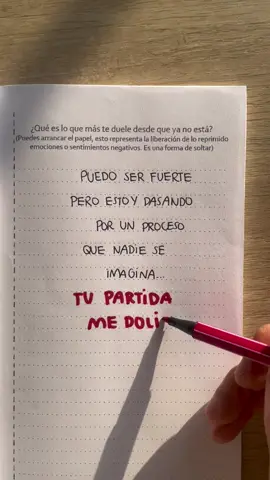 ¿Qué es lo que más te duele desde que ya no está?
(Puedes arrancar el papel, esto representa la liberación de lo reprimido
emociones o sentimientos negativos. Es una forma de soltar)
PUEDO SER FUERTE
PERO ESTOY PASANDO
POR UN PROCESO
QUE NADIE SE
IMAGINA...
TU PARTIDA
ME DOLI